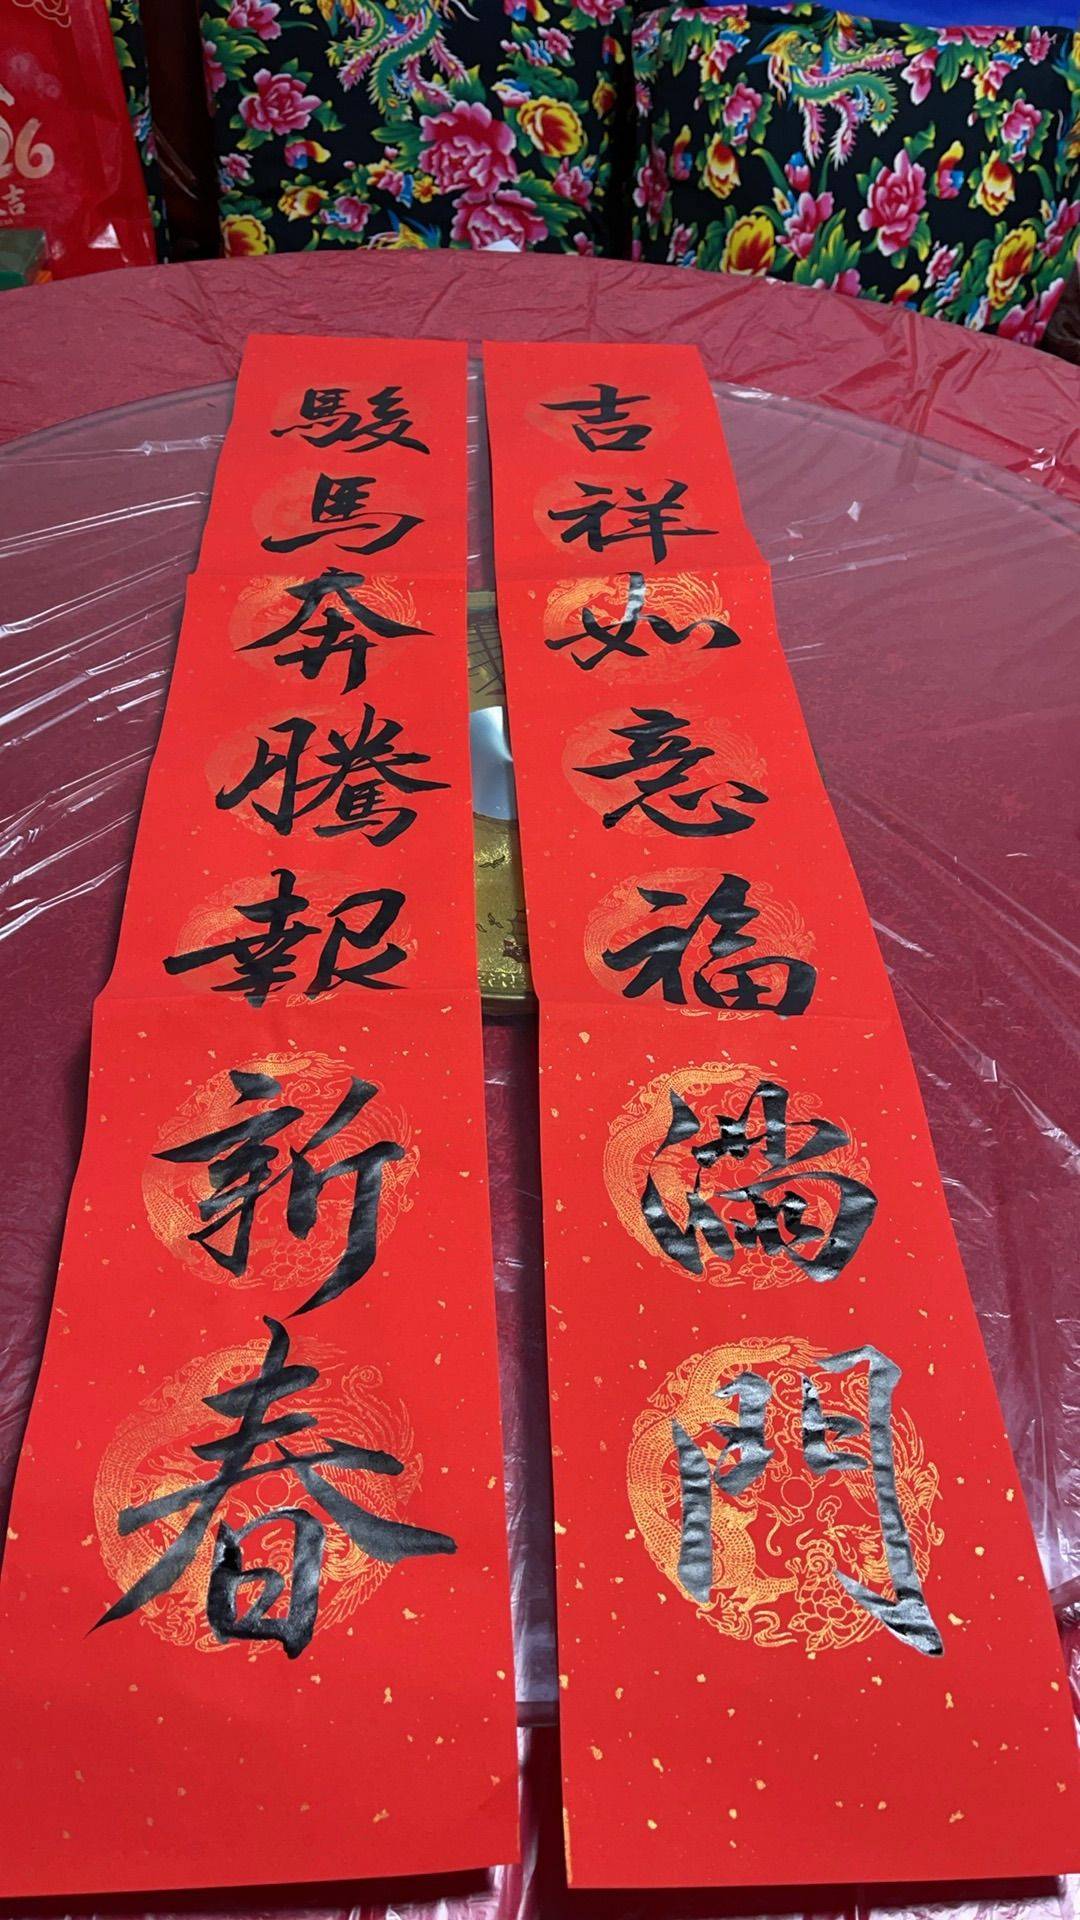 駿馬奔騰報新春
吉祥如意福滿門
26
吉